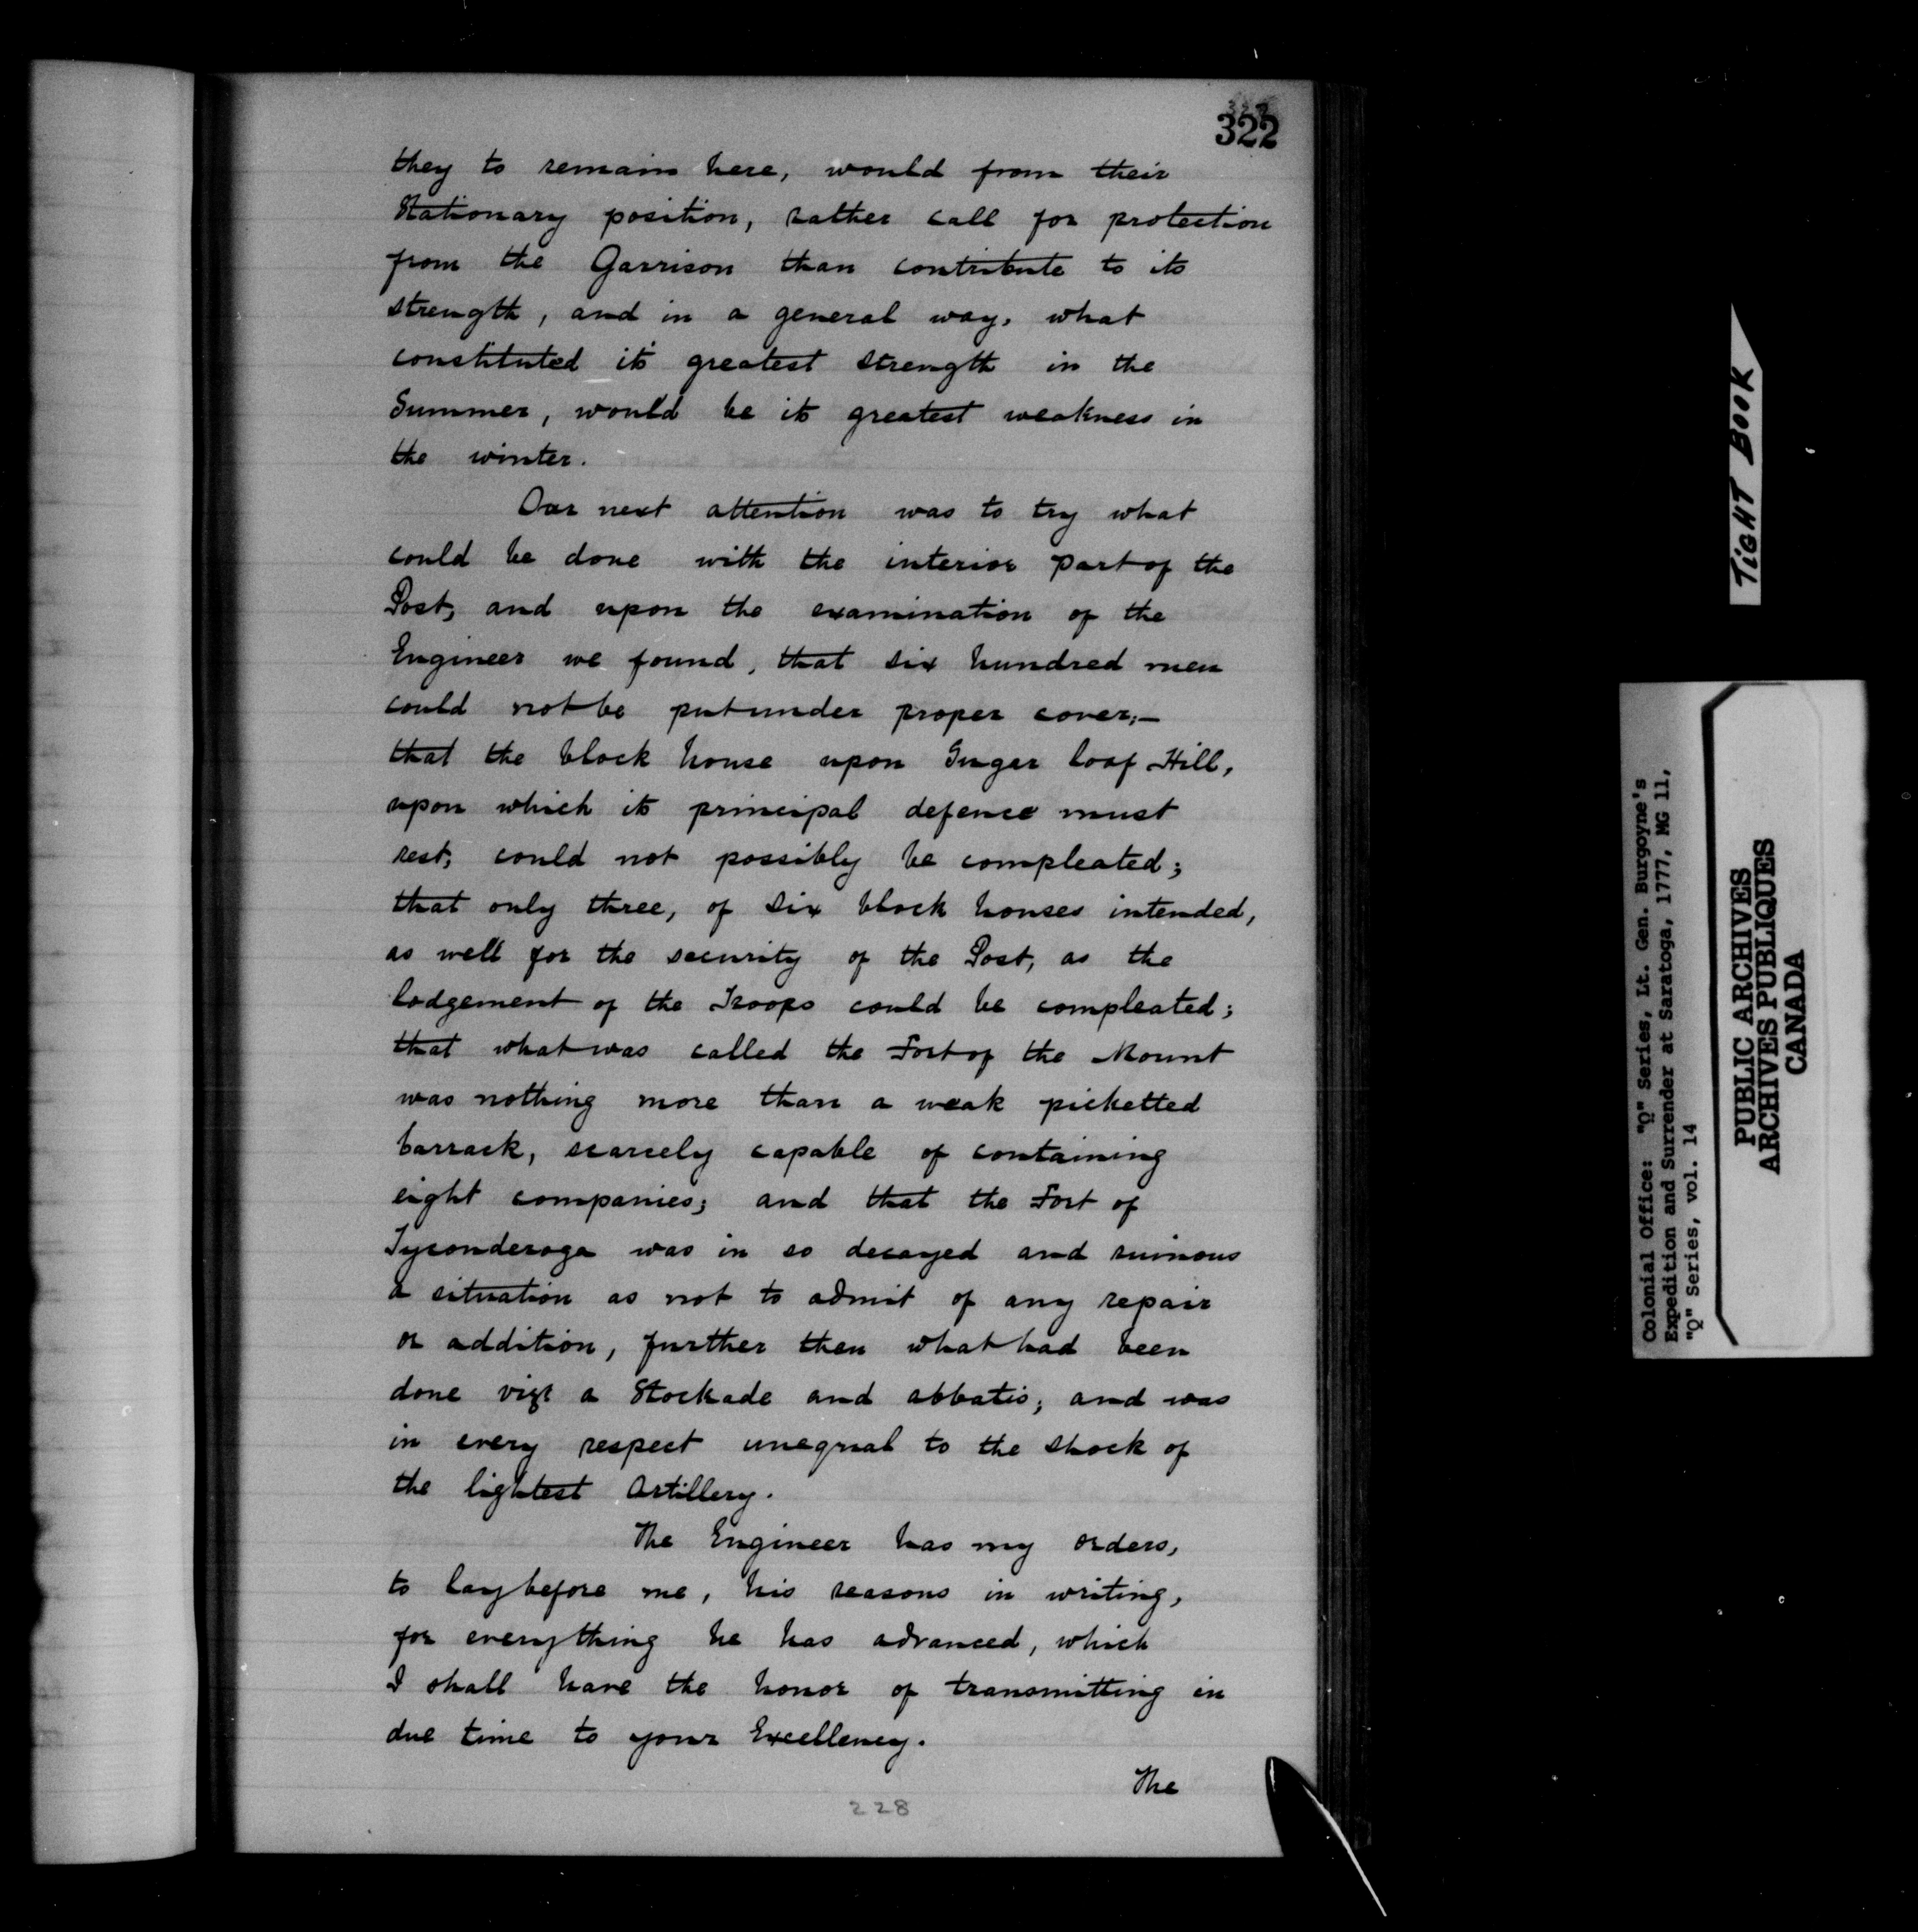 322
they to remain here, would from their
Stationary position, rather call for protection
from the Garrison than contribute to its
strength, and in a general way, what
constituted its greatest strength in the
Summer, would be its greatest weakness in
the winter.
Our next attention was to try what
could be done with the interior part of the
Post, and upon the examination of the
Engineer we found, that six hundred men
could not be put under proper cover;—
that the block house upon Sugar loaf Hill,
upon which its principal defence must
rest, could not possibly be compleated;
that only three, of six block houses intended,
as well for the security of the Post, as the
lodgement of the Troops could be compleated;
that what was called the Fort of the Mount
was nothing more than a weak picketted
barrack, scarcely capable of containing
eight companies; and that the Fort of
Tyconderoga was in so decayed and ruinous
a situation as not to admit of any repair
or addition, further then what had been
done vizt a Stockade and abbatis; and was
in every respect unequal to the shock of
the lightest Artillery.
The Engineer has my orders,
to lay before me, his reasons in writing,
for everything he has advanced, which
I shall have the honor of transmitting in
due time to your Excellency.
The
228
TIGHT BOOK
Colonial Office: "Q" Series, Lt. Gen. Burgoyne's
Expedition and Surrender at Saratoga, 1777, MG 11,
"Q" Series, vol. 14
PUBLIC ARCHIVES
ARCHIVES PUBLIQUES
CANADA